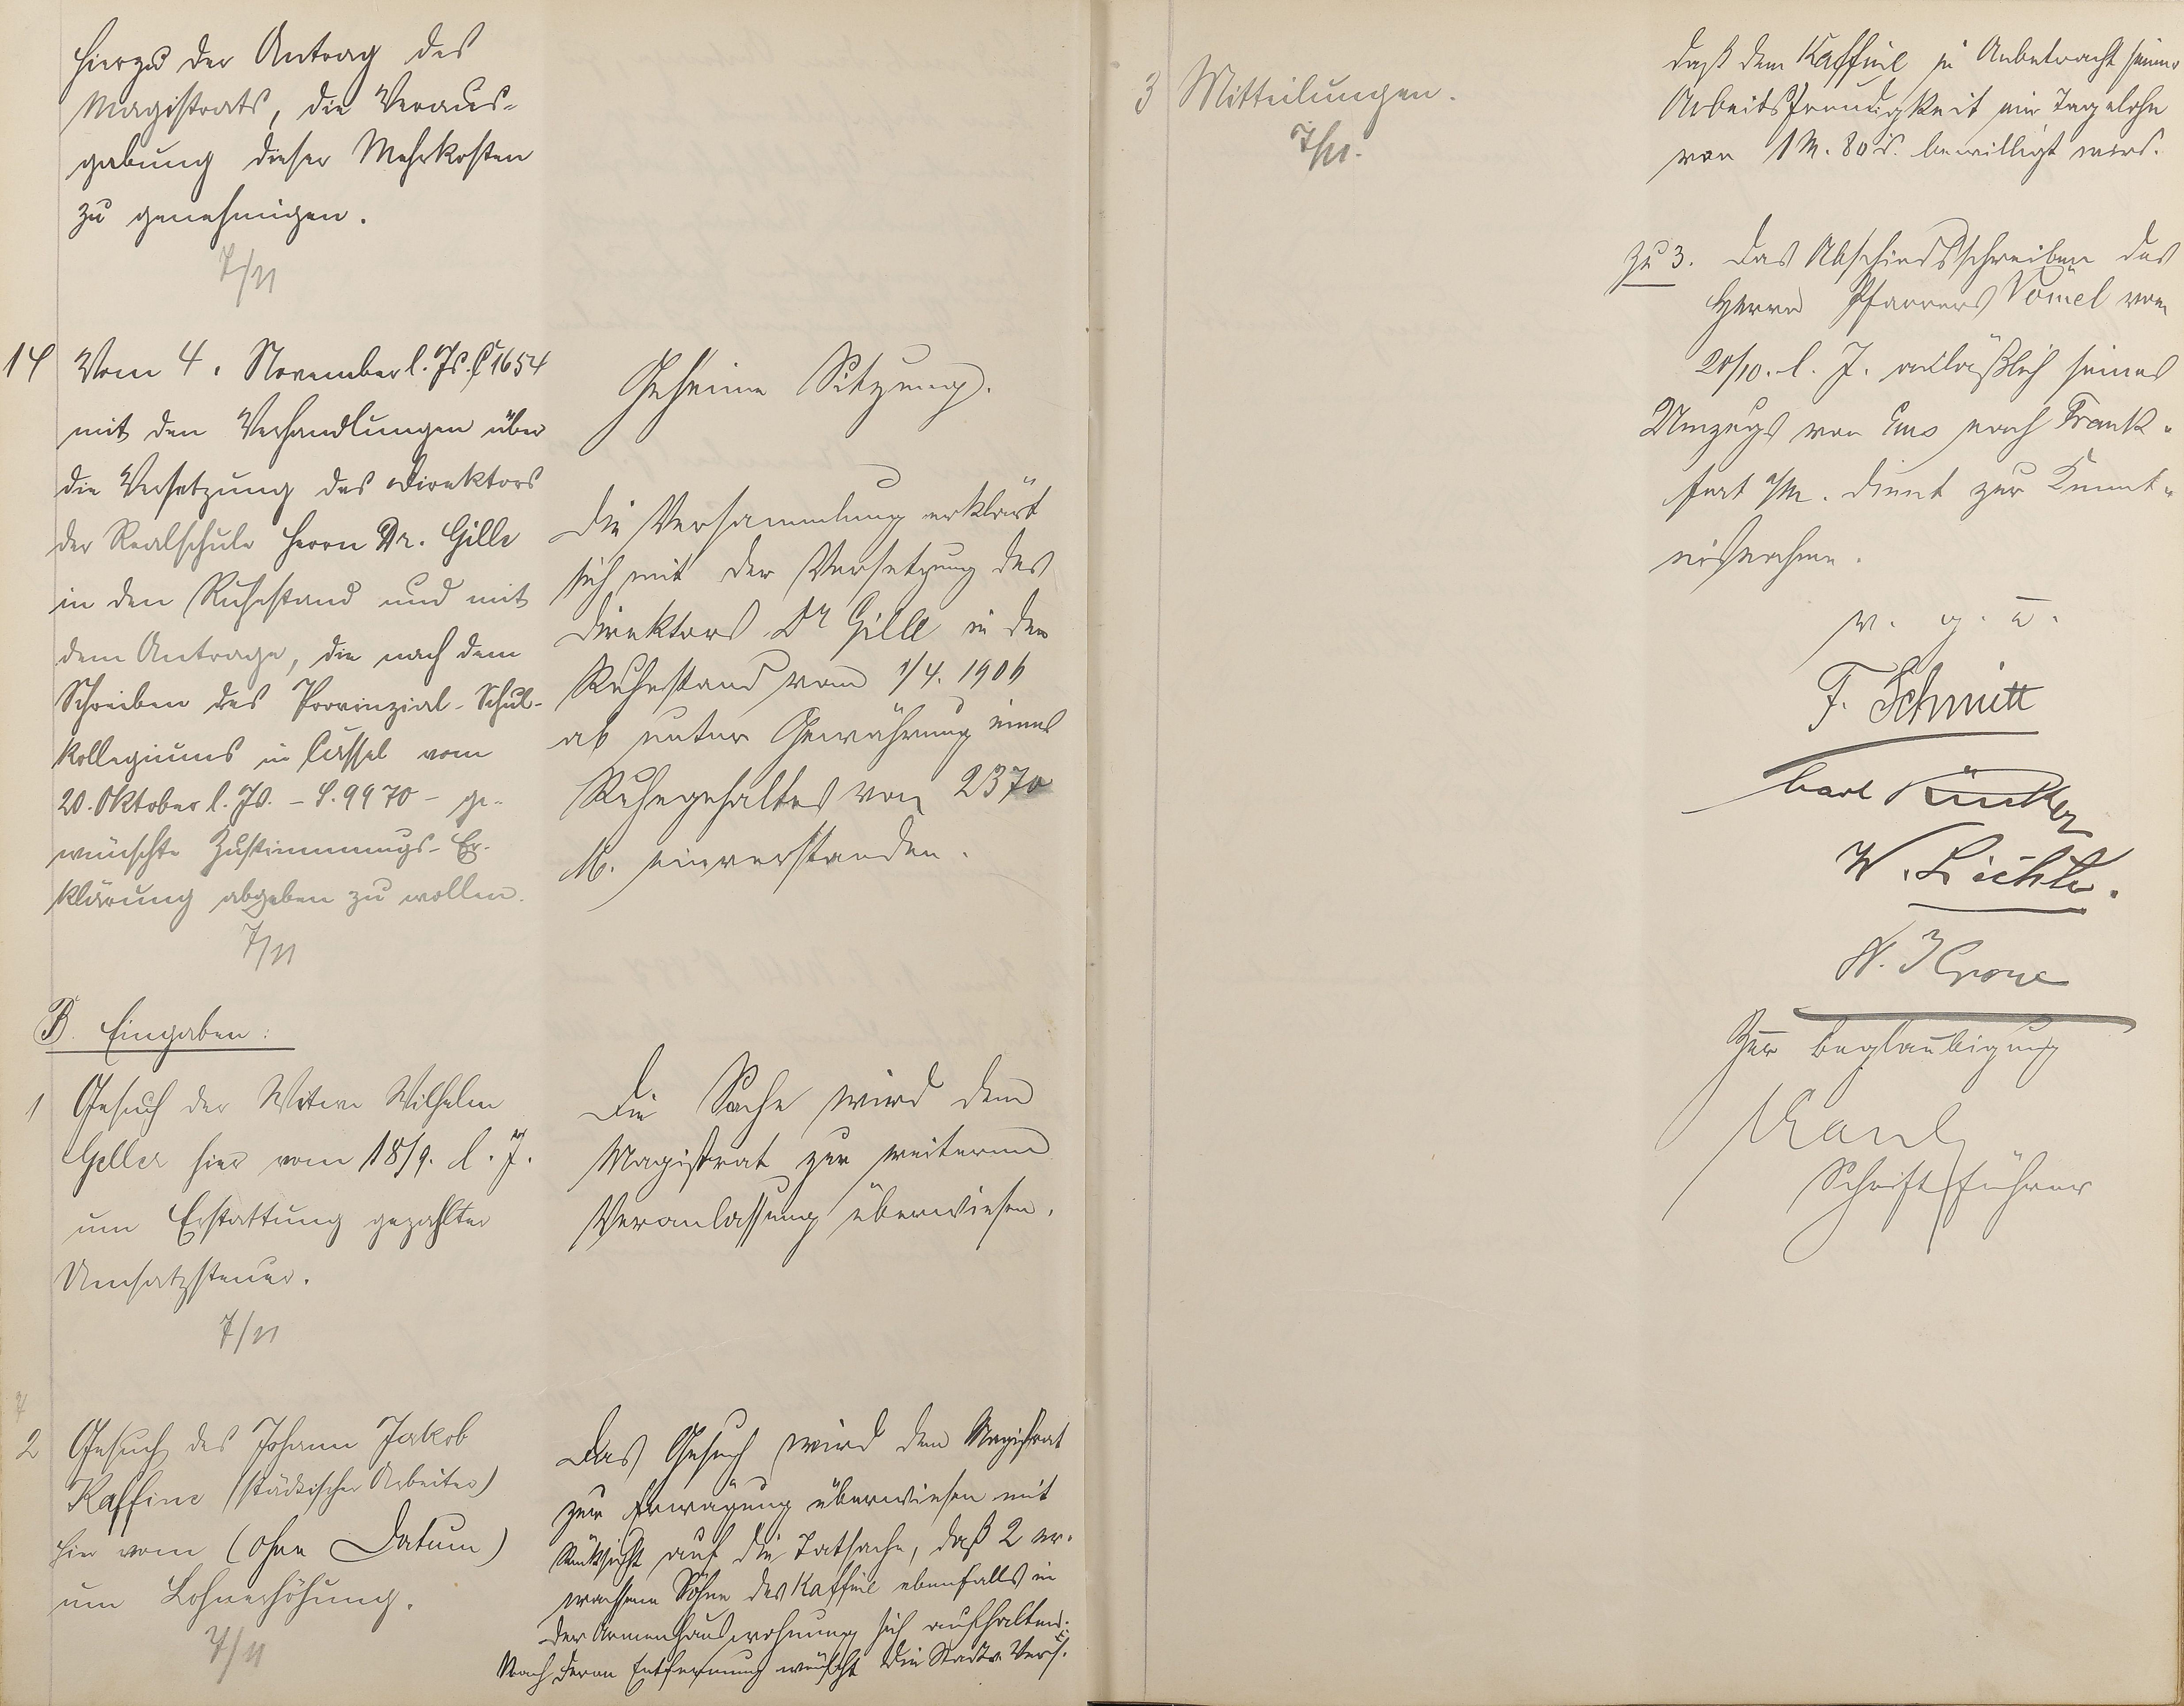 hierzu der Antrag des
Magistrats, die Veraus-
gabung dieser Mehrkosten
zu genehmigen.
7/11
14 Vom 4. November l. Js. 1654
mit den Verhandlungen über
die Versetzung des Direktors
der Realschule Herrn Dr. Gille
in den Ruhestand und mit
dem Antrage, die nach dem
Schreiben des Provinzial-Schul-
kollegiums in Cassel vom
20. Oktober l. Js. - S. 9970 - ge-
wünschte Zustimmungs-Er-
klärung abgeben zu wollen.
7/11
Geheime Sitzung.
Die Versammlung erklärt
sich mit der Versetzung des
Direktors Dr Gille in den
Ruhestand vom 1/4. 1906
ab unter Gewährung eines
Ruhegehaltes von 2370
M. einverstanden.
B. Eingaben:
1 Gesuch der Witwe Wilhelm
Geller hier vom 18/9. l. J.
um Erstattung gezahlter
Umsatzsteuer.
7/11
Die Sache wird dem
Magistrat zur weiteren
Veranlassung überwiesen.
2 Gesuch des Johann Jakob
Kaffine (städtischer Arbeiter)
hier vom (ohne Datum)
um Lohnerhöhung.
7/11
Das Gesuch wird dem Magistrat
zur Erwägung überwiesen mit
Rücksicht auf die Tatsache, daß 2 er-
wachsene Söhne des Kaffine ebenfalls in
der Armenhauswohnung sich aufhalten.
Nach deren Entfernung wünscht die Stadtv. Vers.
3 Mitteilungen.
7/11.
daß dem Kaffine in Anbetracht seiner
Arbeitsfreudigkeit ein Tagelohn
von 1 M. 80 bewilligt wird.
Zu 3. Das Abschiedsschreiben des
Herrn Pfarrers Vömel vom
20/10. l. J. anläßlich seines
Umzugs von Ems nach Frank-
furt a/M. dient zur Kennt-
nisnahme.
v. g. u.
F. Schmitt
Carl
W. Lichte.
W. Krone
Zur Beglaubigung
Schriftführer